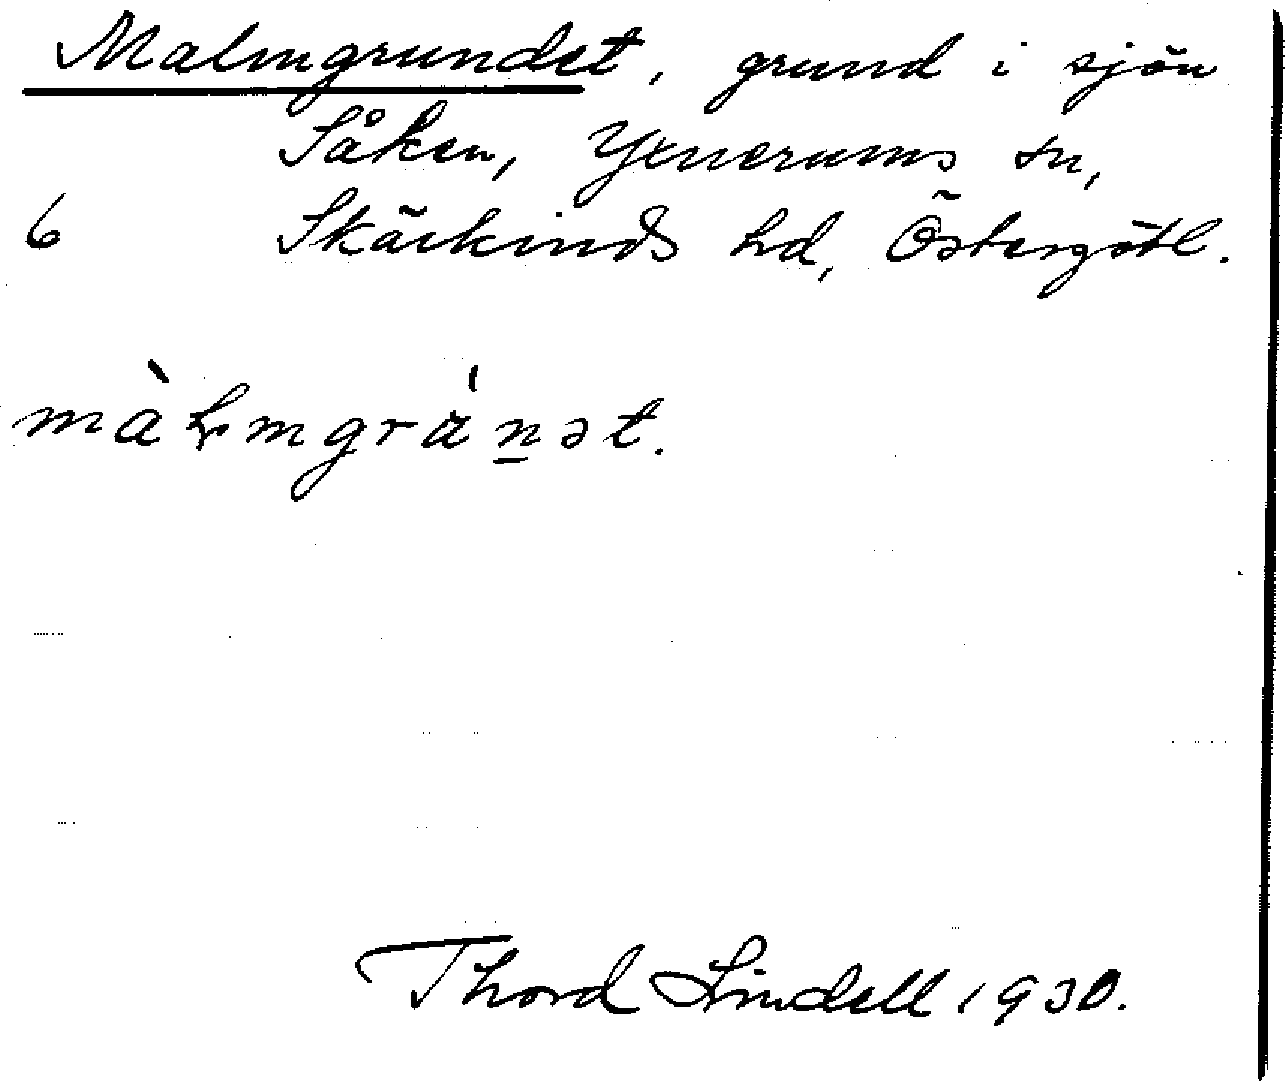 Malmgrundet, grund i sjön
Såken, Yxnerums sn,
6 Skärkinds hd, Östergötl.
màḷmgrä́n̲ət.
Thord Lindell 1930.